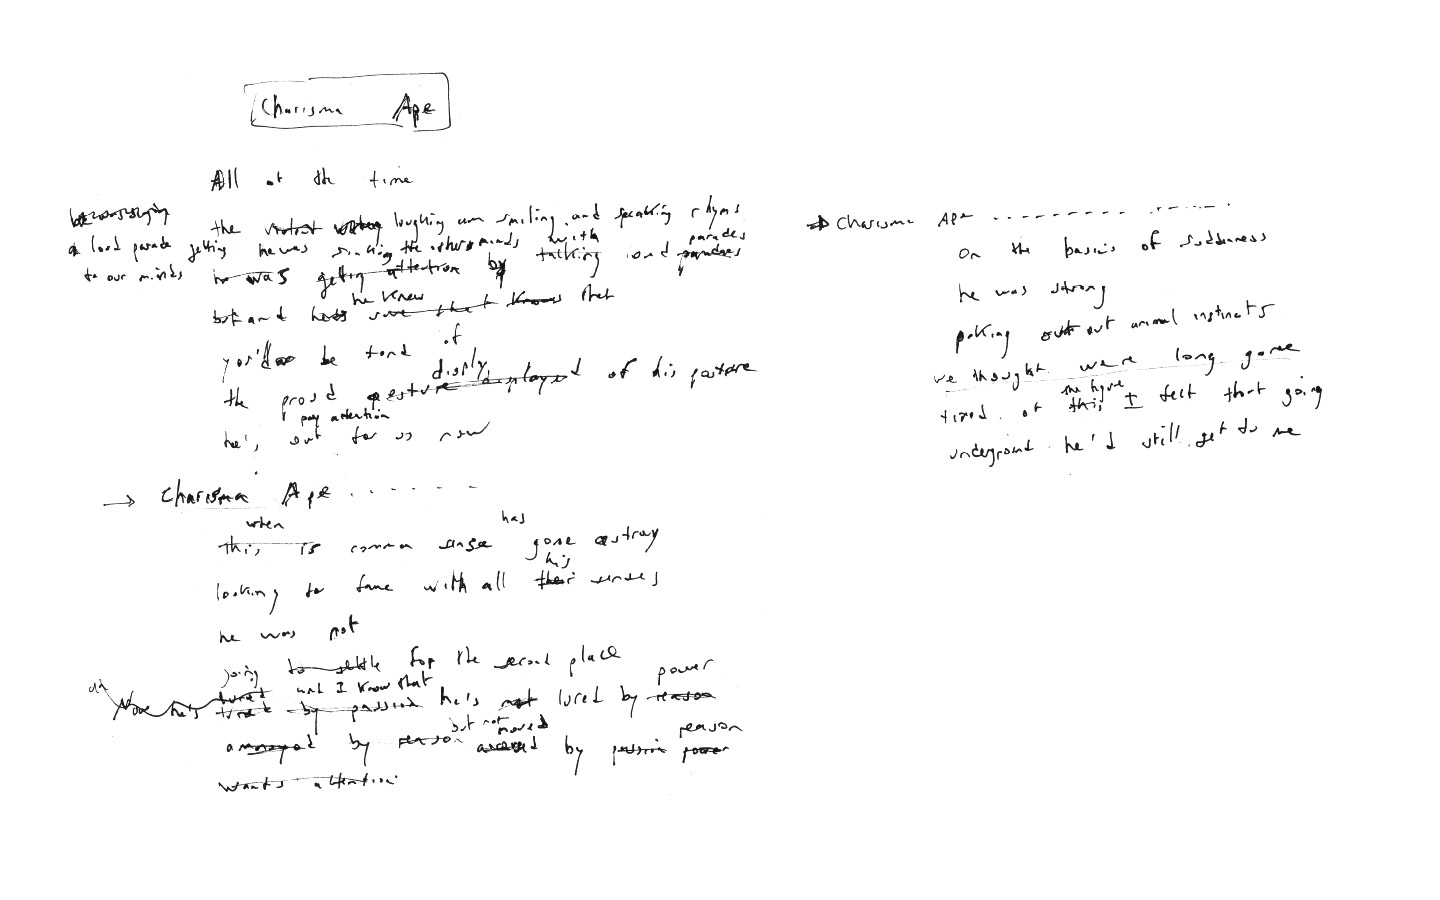 Charisma Ape
All of the time
the laughing smiling and speaking rhyms
a loud parade getting he was the others minds with parades
to our minds he was getting attention by talking loud paradoes
he knew
but and that
you'd be fond of
display
the proud gesture displayed of his posture
I pay attention
he's out for us now
→ Charisma Ape . . . . . .
when has
this is common sense gone astray
his
looking for fame with all their senses
he was not
going to settle for the second place
and I know that power
Now he's lured by passion he's not lured by reason
but not moved reason
by reason by passion power
wants attention
→ Charisma Ape - - - - - - - - -
On the basics of suddenness
he was strong
poking out out animal instincts
we thought were long gone
the figure
tired of this I felt that going
underground he'd still get to me